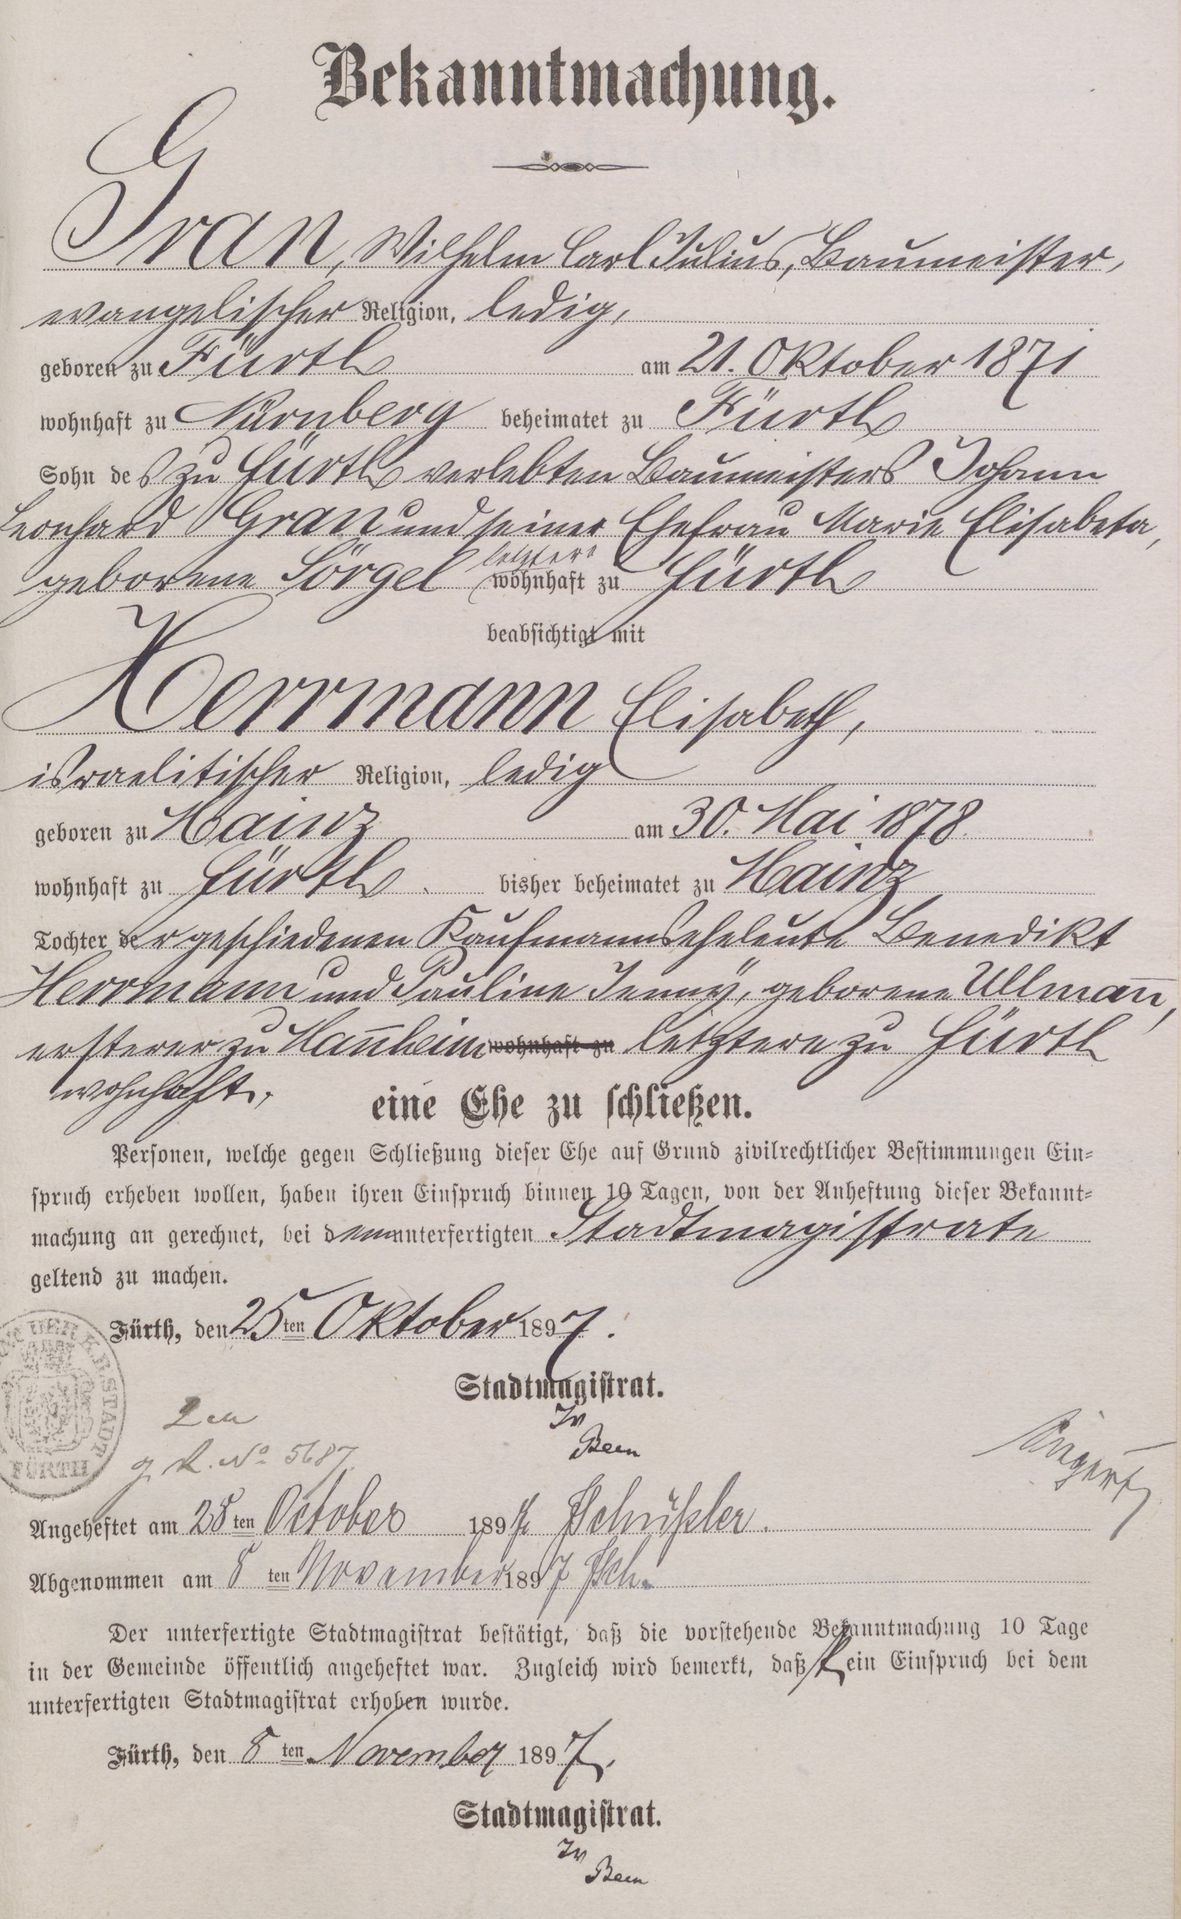 Bekanntmachung.
Gran, Wilhelm Carl Julius, Baumeister,
evangelischer Religion, ledig,
geboren zu Fürth am 21. Oktober 1871
wohnhaft zu Nürnberg beheimatet zu Fürth
Sohn des zu Fürth verlebten Baumeisters Johann
Leonhard Gran und seiner Ehefrau Marie Elisabeta,
geborene Sörgel letztere wohnhaft zu Fürth
beabsichtigt mit
Herrmann Elisabeth,
israelitischer Religion, ledig
geboren zu Mainz am 30. Mai 1878
wohnhaft zu Fürth. bisher beheimatet zu Mainz
Tochter der geschiedenen Kaufmannseheleute Benedikt
Herrmann und Pauline Jenny, geborene Ullmañ,
ersterer zu Mañheim wohnhaft zu letztere zu Fürth
wohnhaft,
eine Ehe zu schließen.
Personen, welche gegen Schließung dieser Ehe auf Grund zivilrechtlicher Bestimmungen Ein-
spruch erheben wollen, haben ihren Einspruch binnen 10 Tagen, von der Anheftung dieser Bekannt-
machung an gerechnet, bei dem unterfertigten Stadtmagistrate
geltend zu machen.
Fürth, den 25ten Oktober 1897.
Stadtmagistrat.
STADT FÜRTH
g. R. No 5687.
Angeheftet am 28ten October 1897 Schüßler.
Abgenommen am 8ten November 1897 Sch.
Der unterfertigte Stadtmagistrat bestätigt, daß die vorstehende Bekanntmachung 10 Tage
in der Gemeinde öffentlich angeheftet war. Zugleich wird bemerkt, daß kein Einspruch bei dem
unterfertigten Stadtmagistrat erhoben wurde.
Fürth, den 8ten November 1897.
Stadtmagistrat.